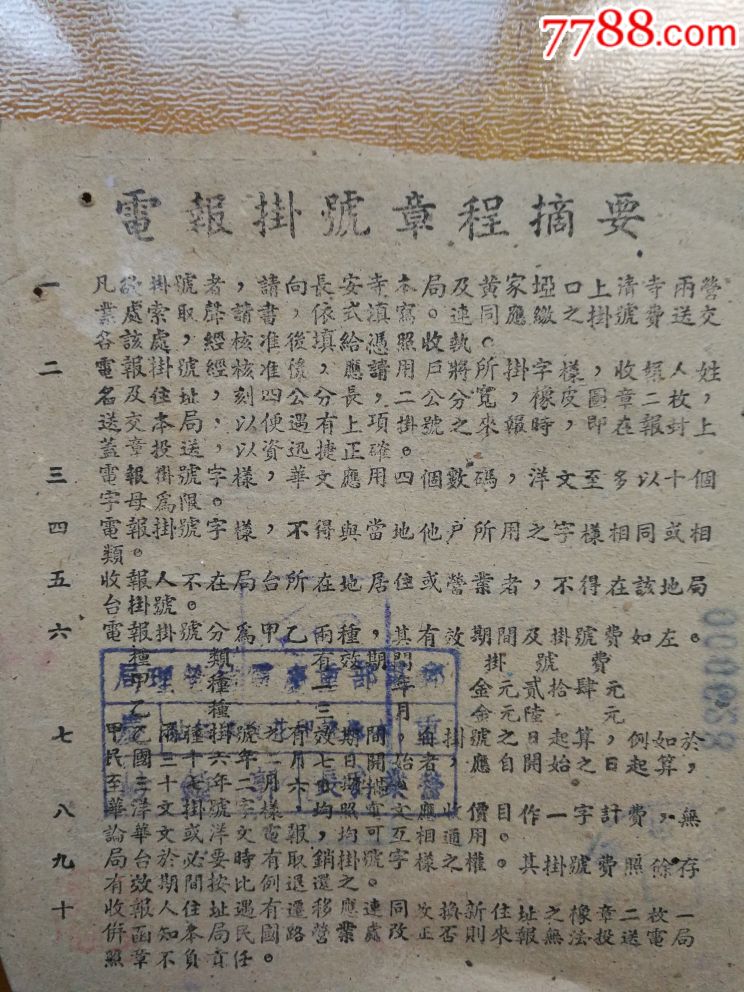 7788.com
中国收藏热线
電報掛號章程摘要
一 凡欲掛號者，請向長安寺本局及黃家埡口上清寺兩營
業處索取聲請書，依式填寫。連同應繳之掛號費送交
各該處，經核准後填給憑照收執。
二 電報掛號經核准後，應請用戶將所掛字樣，收報人姓
名及住址，刻四公分長，二公分寬，橡皮圖章二枚，
送交本局，以便遇有上項掛號之來報時，即在報封上
蓋章投送，以資迅捷正確。
三 電報掛號字樣，華文應用四個數碼，洋文至多以十個
字母為限。
四 電報掛號字樣，不得與當地他戶所用之字樣相同或相
類。
五 收報人不在局台所在地居住或營業者，不得在該地局
台掛號。
六 電報掛號分為甲乙兩種，其有效期間及掛號費如左。
種類 有效期間 掛號費
甲種 一年 金元貳拾肆元
乙種 三月 金元陸元
七 甲乙兩種掛號
民國三十七年
至
八 華洋文掛號
論華文或洋文電報均可互相通用。
九 局台於必要時有取銷掛號字樣之權。其掛號費照餘存
有效期間按比例退還之。
十 收報人住址遇有遷移應連同改換新住址之橡章二枚一
併函知本局民國路營業處改正否則來報無法投送電局
照章不負責任。